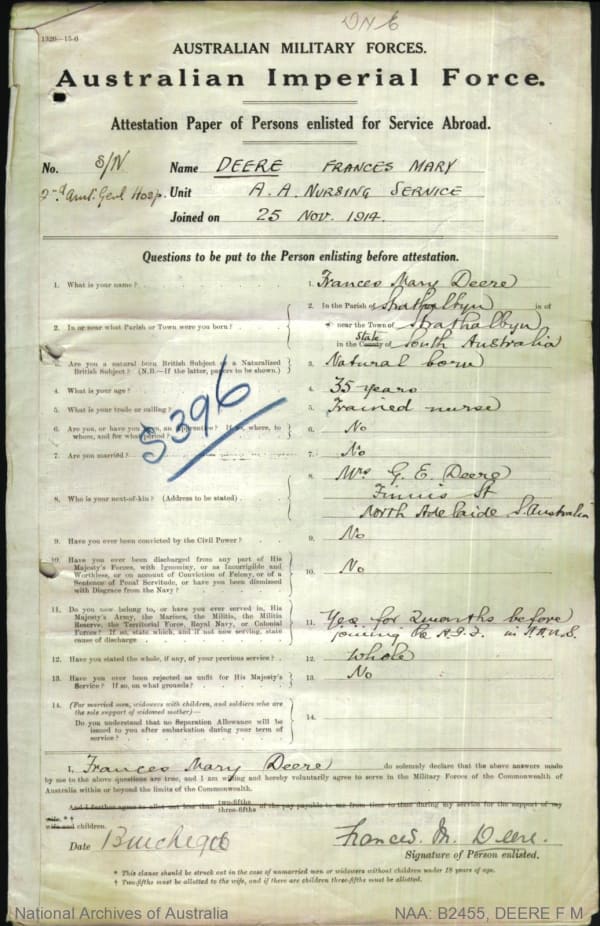 1320—15-6
AUSTRALIAN MILITARY FORCES.
Australian Imperial Force.
Attestation Paper of Persons enlisted for Service Abroad.
No. S/N Name DEERE FRANCES MARY
2nd Aust. Genl Hosp. Unit A. A. NURSING SERVICE
Joined on 25 NOV. 1914.
Questions to be put to the Person enlisting before attestation.
1. What is your name? 1. Frances Mary Deere
2. In or near what Parish or Town were you born? 2. In the Parish of Strathalbyn in or
near the Town of Strathalbyn
in the County State of South Australia
3. Are you a natural born British Subject or a Naturalised
British Subject? (N.B.—If the latter, papers to be shown.) 3. Natural born
4. What is your age? 4. 35 years
5. What is your trade or calling? 5. Trained nurse
6. Are you, or have you been, an Apprentice? If so, where, to
whom, and for what period? 6. No
7. Are you married? 7. No
8. Who is your next-of-kin? (Address to be stated) 8. Mrs G. E. Deere
Finnis St
North Adelaide S. Australia
9. Have you ever been convicted by the Civil Power? 9. No
10. Have you ever been discharged from any part of His
Majesty's Forces, with Ignominy, or as Incorrigible and
Worthless, or on account of Conviction of Felony, or of a
Sentence of Penal Servitude, or have you been dismissed
with Disgrace from the Navy? 10. No
11. Do you now belong to, or have you ever served in, His
Majesty's Army, the Marines, the Militia, the Militia
Reserve, the Territorial Force, Royal Navy, or Colonial
Forces? If so, state which, and if not now serving, state
cause of discharge 11. Yes for 2 months before
joining the A.I.F. in A.A.N.S.
12. Have you stated the whole, if any, of your previous service? 12. Whole
13. Have you ever been rejected as unfit for His Majesty's
Service? If so, on what grounds? 13. No
14. (For married men, widowers with children, and soldiers who are
the sole support of widowed mother)—
Do you understand that no Separation Allowance will be
issued to you after embarkation during your term of
service? 14.
S396
I, Frances Mary Deere do solemnly declare that the above answers made
by me to the above questions are true, and I am willing and hereby voluntarily agree to serve in the Military Forces of the Commonwealth of
Australia within or beyond the limits of the Commonwealth.
And I further agree to allot not less than two-fifths three-fifths of the pay payable to me from time to time during my service for the support of my
wife. *†
wife and children.
Date Frances M. Deere.
Signature of Person enlisted.
* This clause should be struck out in the case of unmarried men or widowers without children under 18 years of age.
† Two-fifths must be allotted to the wife, and if there are children three-fifths must be allotted.
National Archives of Australia NAA: B2455, DEERE F M